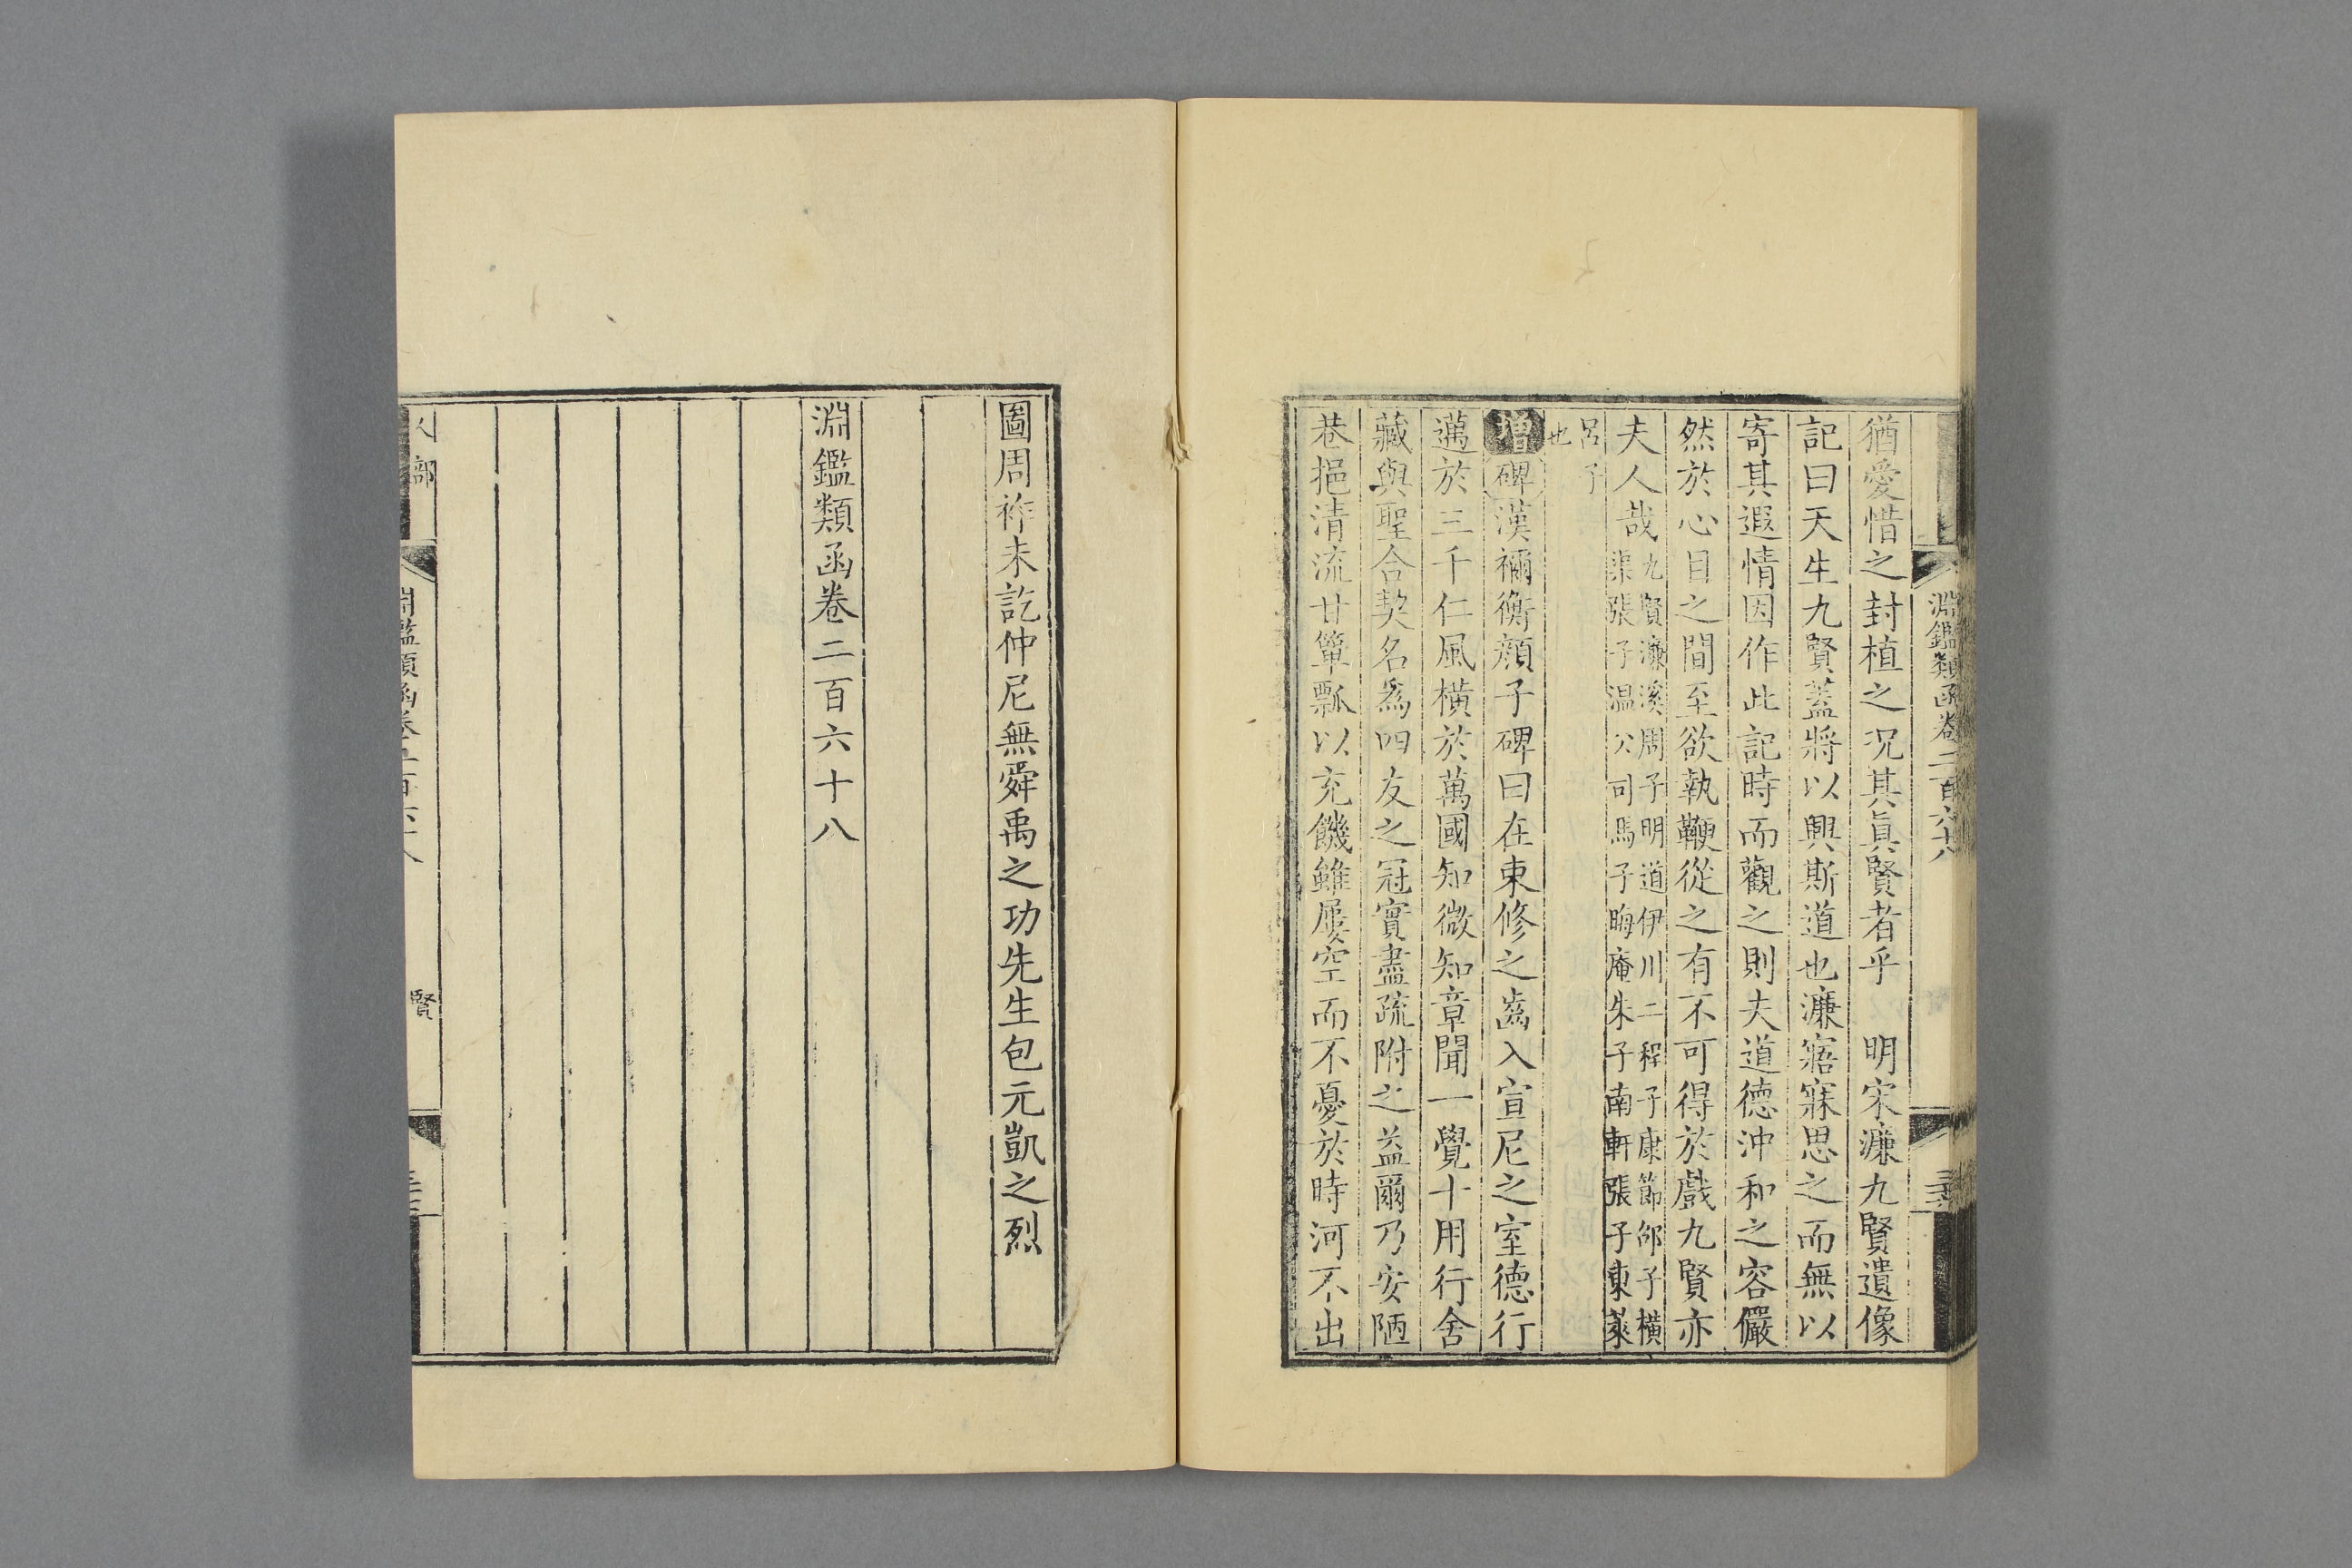 淵鑑類函卷二百六十八
猶愛惜之封植之况其眞賢者乎　明宋濂九賢遺像
記曰天生九賢蓋將以興斯道也濂寤寐思之而無以
寄其遐情因作此記時而觀之則夫道德沖和之容儼
然於心目之間至欲執鞭從之有不可得於戲九賢亦
夫人哉九賢濂溪周子明道伊川二程子康節邵子橫
渠張子温公司馬子晦庵朱子南軒張子東萊
呂子
也
增碑漢禰衡顏子碑曰在束修之齒入宣尼之室德行
邁於三千仁風橫於萬國知微知章聞一覺十用行舍
藏與聖合契名爲四友之冠實盡疏附之益爾乃安陋
巷挹清流甘簞瓢以充饑雖屢空而不憂於時河不出
圖周祚未訖仲尼無舜禹之功先生包元凱之烈
淵鑑類函卷二百六十八
人部
淵鑑類函卷二百六十八
賢